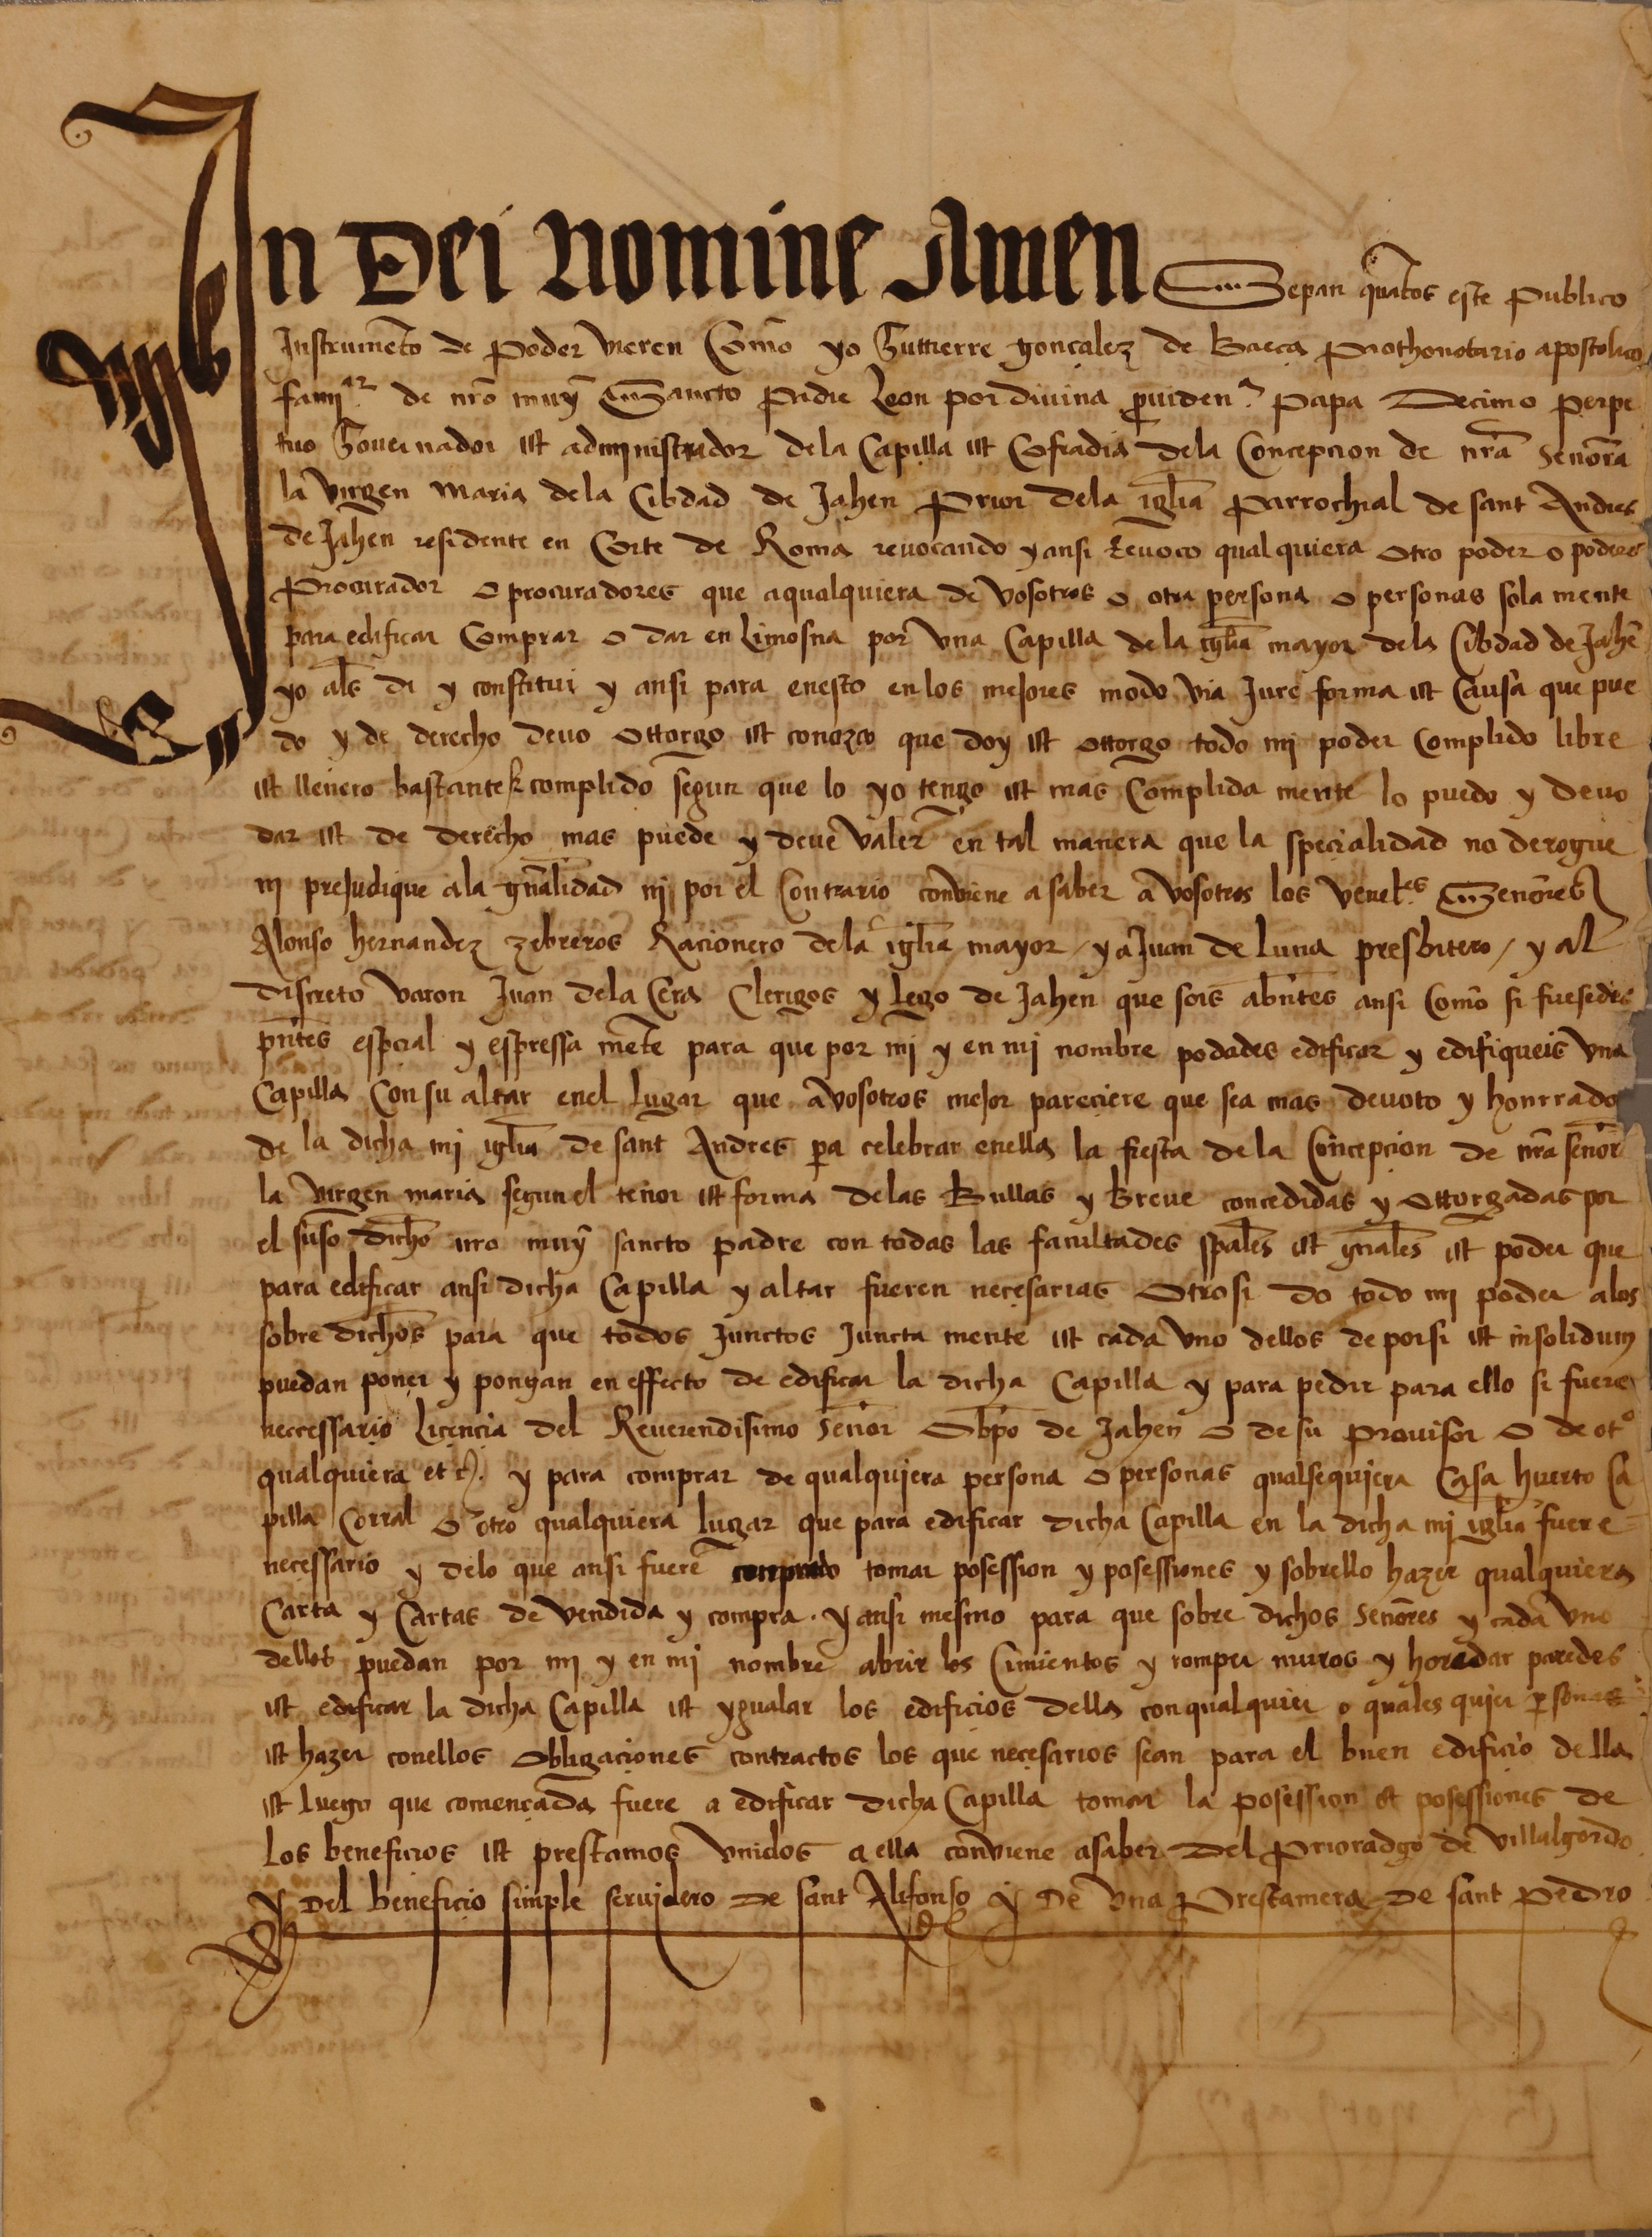 In Dei Nomine Amen Sepan quãtos este publico
Instrumẽto de poder vieren Como yo Guttierre gonçalez de Baeça Prothonotario apostolico
fami.ar de nr̃o muy Sancto Padre Leon por divina providen.a Papa Decimo perpe
tuo Governador et administrador de la Capilla et Cofradia de la Concepcion de nr̃a Señora
la virgen maria de la Cibdad de Jahen Prior de la igl̃ia Parrochial de sant Andres
de Jahen residente en Corte de Roma revocando y ansi revoco qualquiera otro poder o poderes
Procurador o procuradores que a qualquiera de vosotros o otra persona o personas sola mente
para edificar Comprar o dar en Limosna por una Capilla de la igl̃ia mayor dela Cibdad de Jahẽ
yo als̃ di y constitui y ansi para enesto en los mejores modo via Jure forma et Causa que pue
do y de derecho devo ottorgo et conozco que doy et ottorgo todo mi poder Complido libre
et llenero bastante complido segun que lo yo tengo et mas Complida mente lo puedo y devo
dar et de derecho mas puede y deve valer en tal manera que la specialidad no derogue
ni prejudique ala gñalidad ni por el Contrario conviene a saber a vosotros los venel.es Señores
Alonso hernandez zebreros Racionero dela igl̃ia mayor / y a Juan de Luna presbitero / y al
discreto varon Juan dela Cera Clerigos y Lego de Jahen que sois abñtes ansi Como si fuesedes
pñtes espcial y espressa mẽte para que por mi y en mi nombre podades edificar y edifiqueis una
Capilla Con su altar enel lugar que a vosotros mejor pareciere que sea mas devoto y honrrado
de la dicha mi igl̃ia de sant Andres pa celebrar enella la fiesta de la Concepcion de nr̃a señor
la virgen maria segun el tenor et forma delas Bullas y Breve concedidas y ottorgadas por
el suso dicho nro muy sancto padre con todas las facultades spales et gñales et poder que
para edificar ansi dicha Capilla y altar fueren necesarias Otrosi do todo mi poder a los
sobre dichos para que todos Junctos Juncta mente et cada uno dellos de por si et insolidum
puedan poner y pongan en effecto de edificar la dicha Capilla y para pedir para ello si fuere
neccessario licencia del Reverendisimo Señor Obp̃o de Jahen o de su provisor o de otº
qualquiera et c). y para comprar de qualquiera persona o personas qualsequiera Casa huerto Ca
pilla Corral o otro qualquiera lugar que para edificar dicha Capilla en la dicha mi igl̃ia fuere=
necessario y delo que ansi fuere comprado tomar posession y posessiones y sobrello hazer qualquiera
Carta y Cartas de vendida y compra. y ansi mesmo para que sobre dichos señores y cada uno
dellos puedan por mi y en mi nombre abrir los Cimientos y romper muros y horadar paredes
et edificar la dicha Capilla et ygualar los edificios della con qualquier o quales quier psonas
et hazer conellos obligaciones contractos los que necesarios sean para el buen edificio della
et luego que començada fuere a edificar dicha Capilla tomar la posession et posessiones de
los beneficios et prestamos unidos a ella conviene a saber Del Prioradgo de villalgordo
y del beneficio simple servidero de sant Alifonso y De una Prestamera de sant Pedro